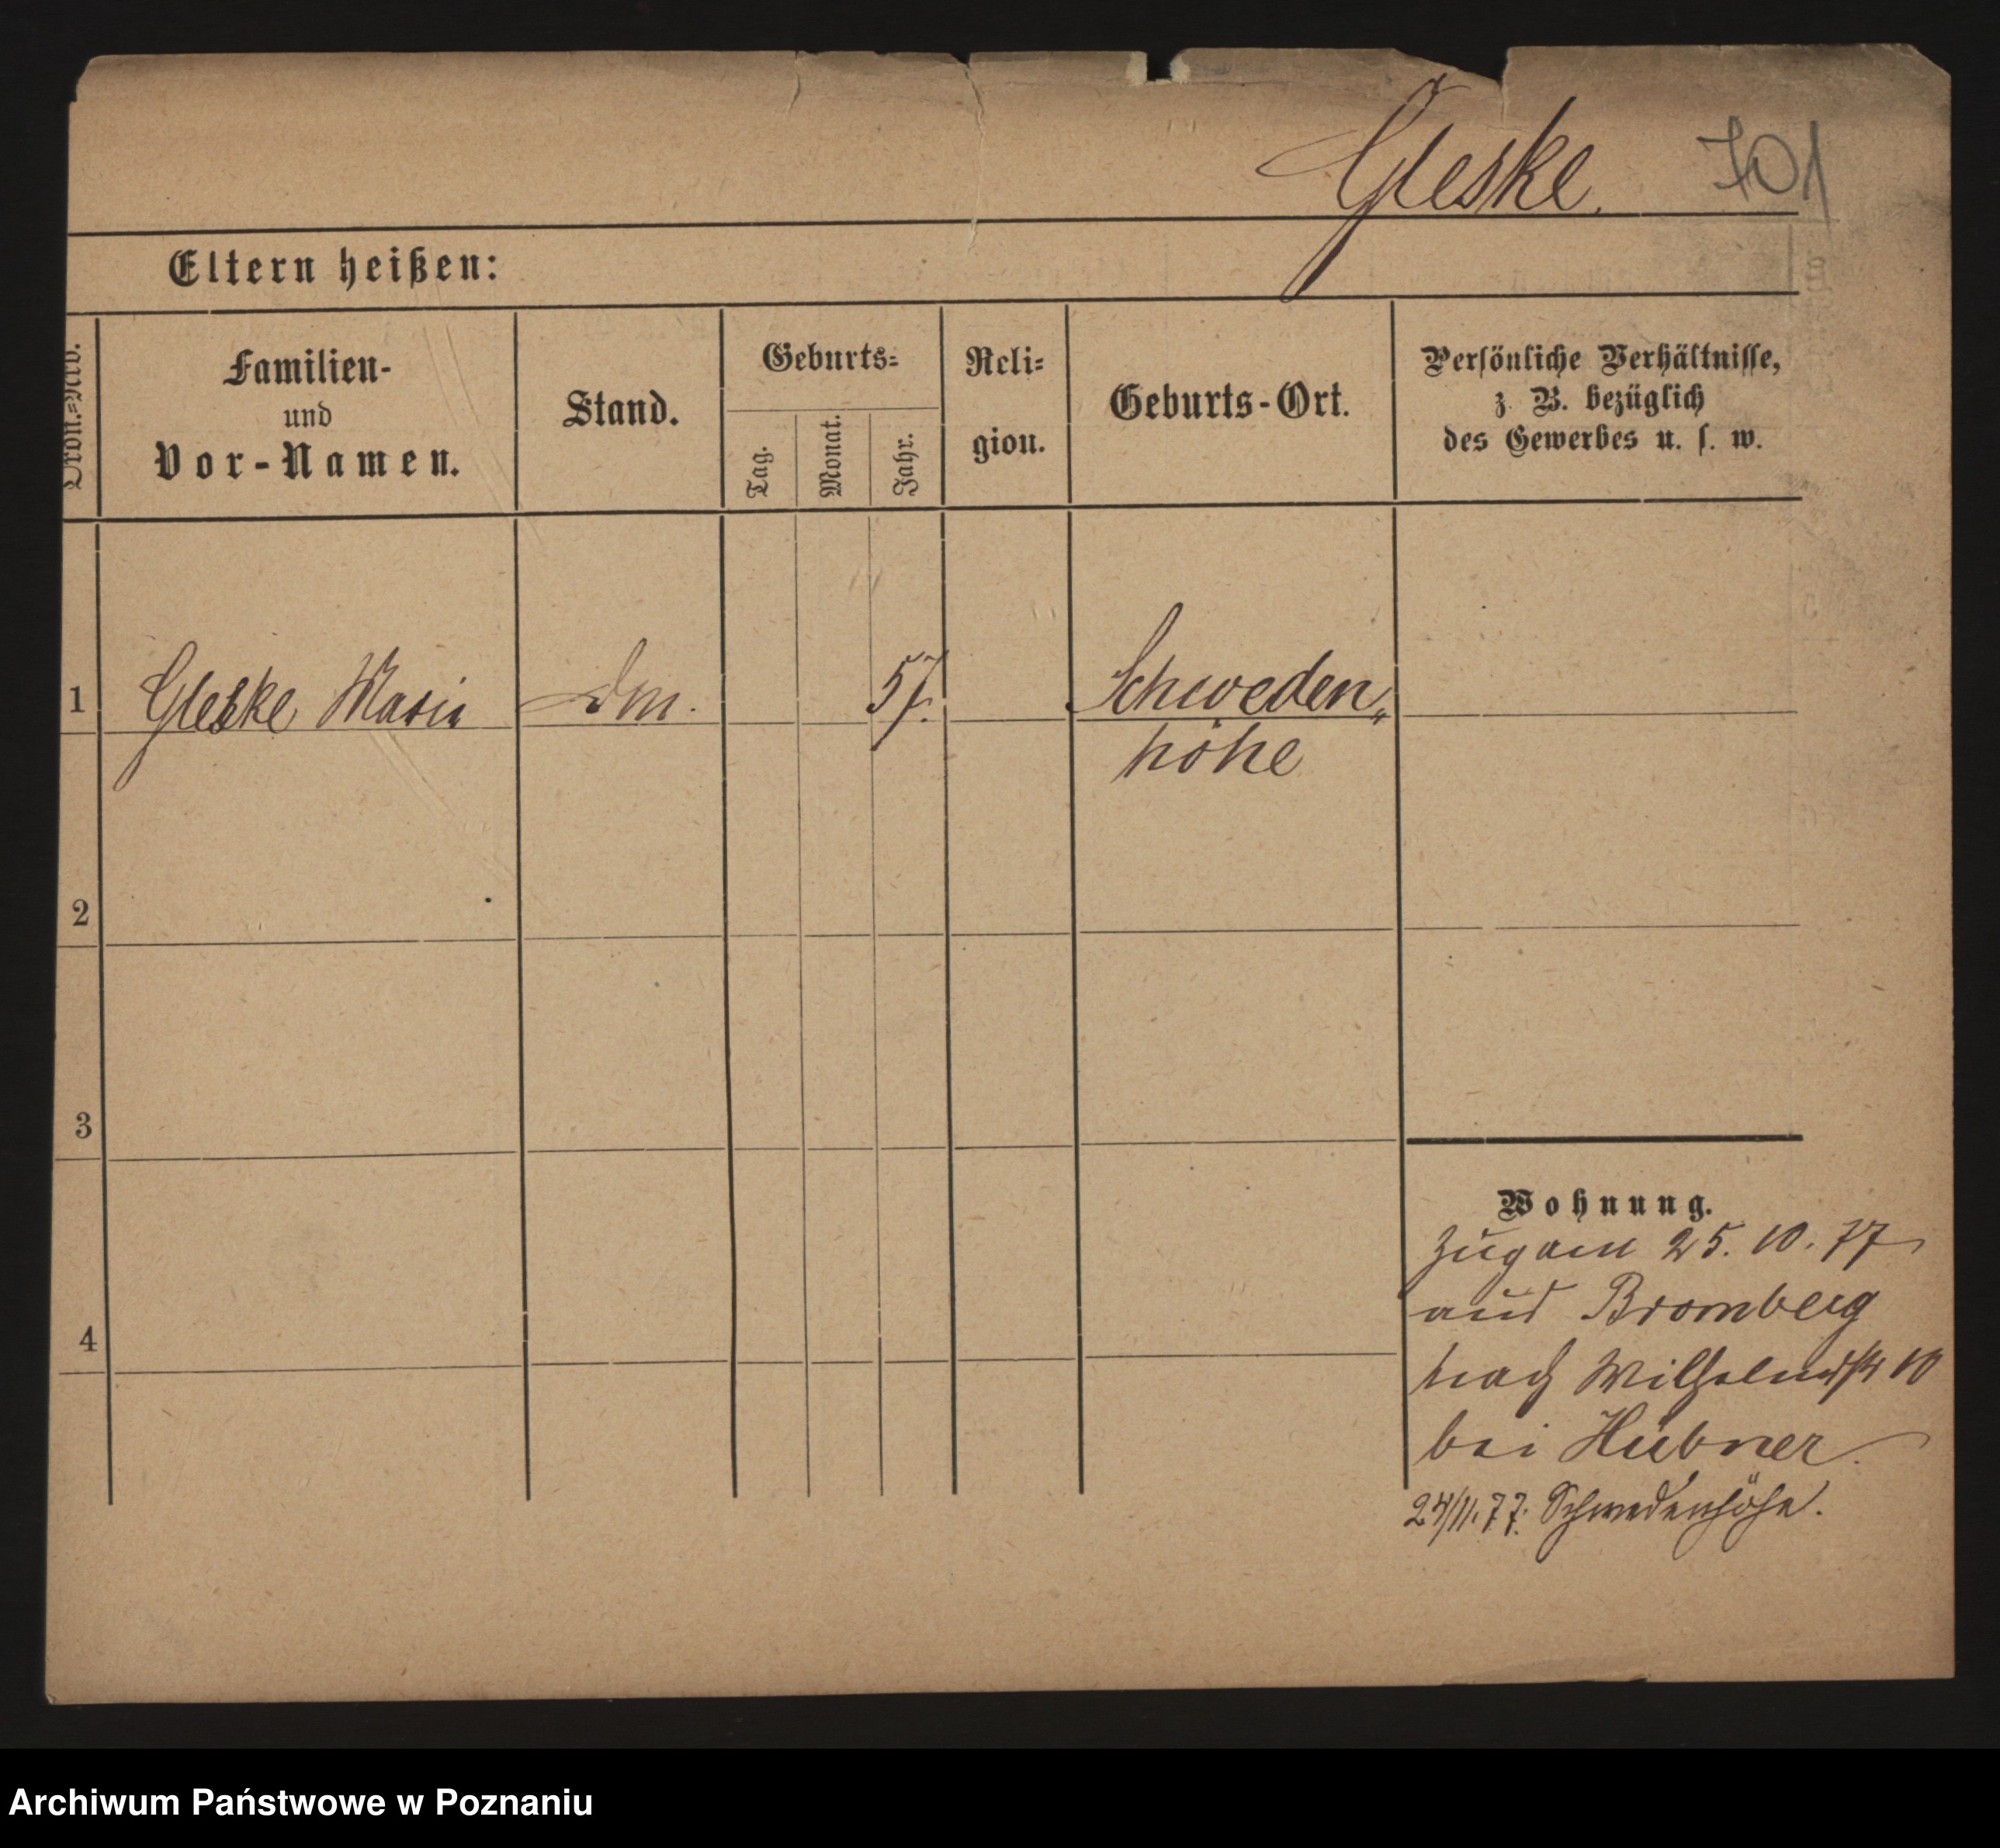 Gleske.
701
Eltern heißen:
Ordn.=Nro.
Familien-
und
Vor-Namen.
Stand.
Geburts=
Tag.
Monat.
Jahr.
Reli=
gion.
Geburts-Ort.
Persönliche Verhältnisse,
z. B. bezüglich
des Gewerbes u. s. w.
1
Gleske Marie
57.
Schweden„
höhe
2
3
4
Wohnung.
25. 10. 77
aus Bromberg
nach Wilhelmstr 10
bei Hübner.
24/11.77. Schwedenhöhe.
Archiwum Państwowe w Poznaniu